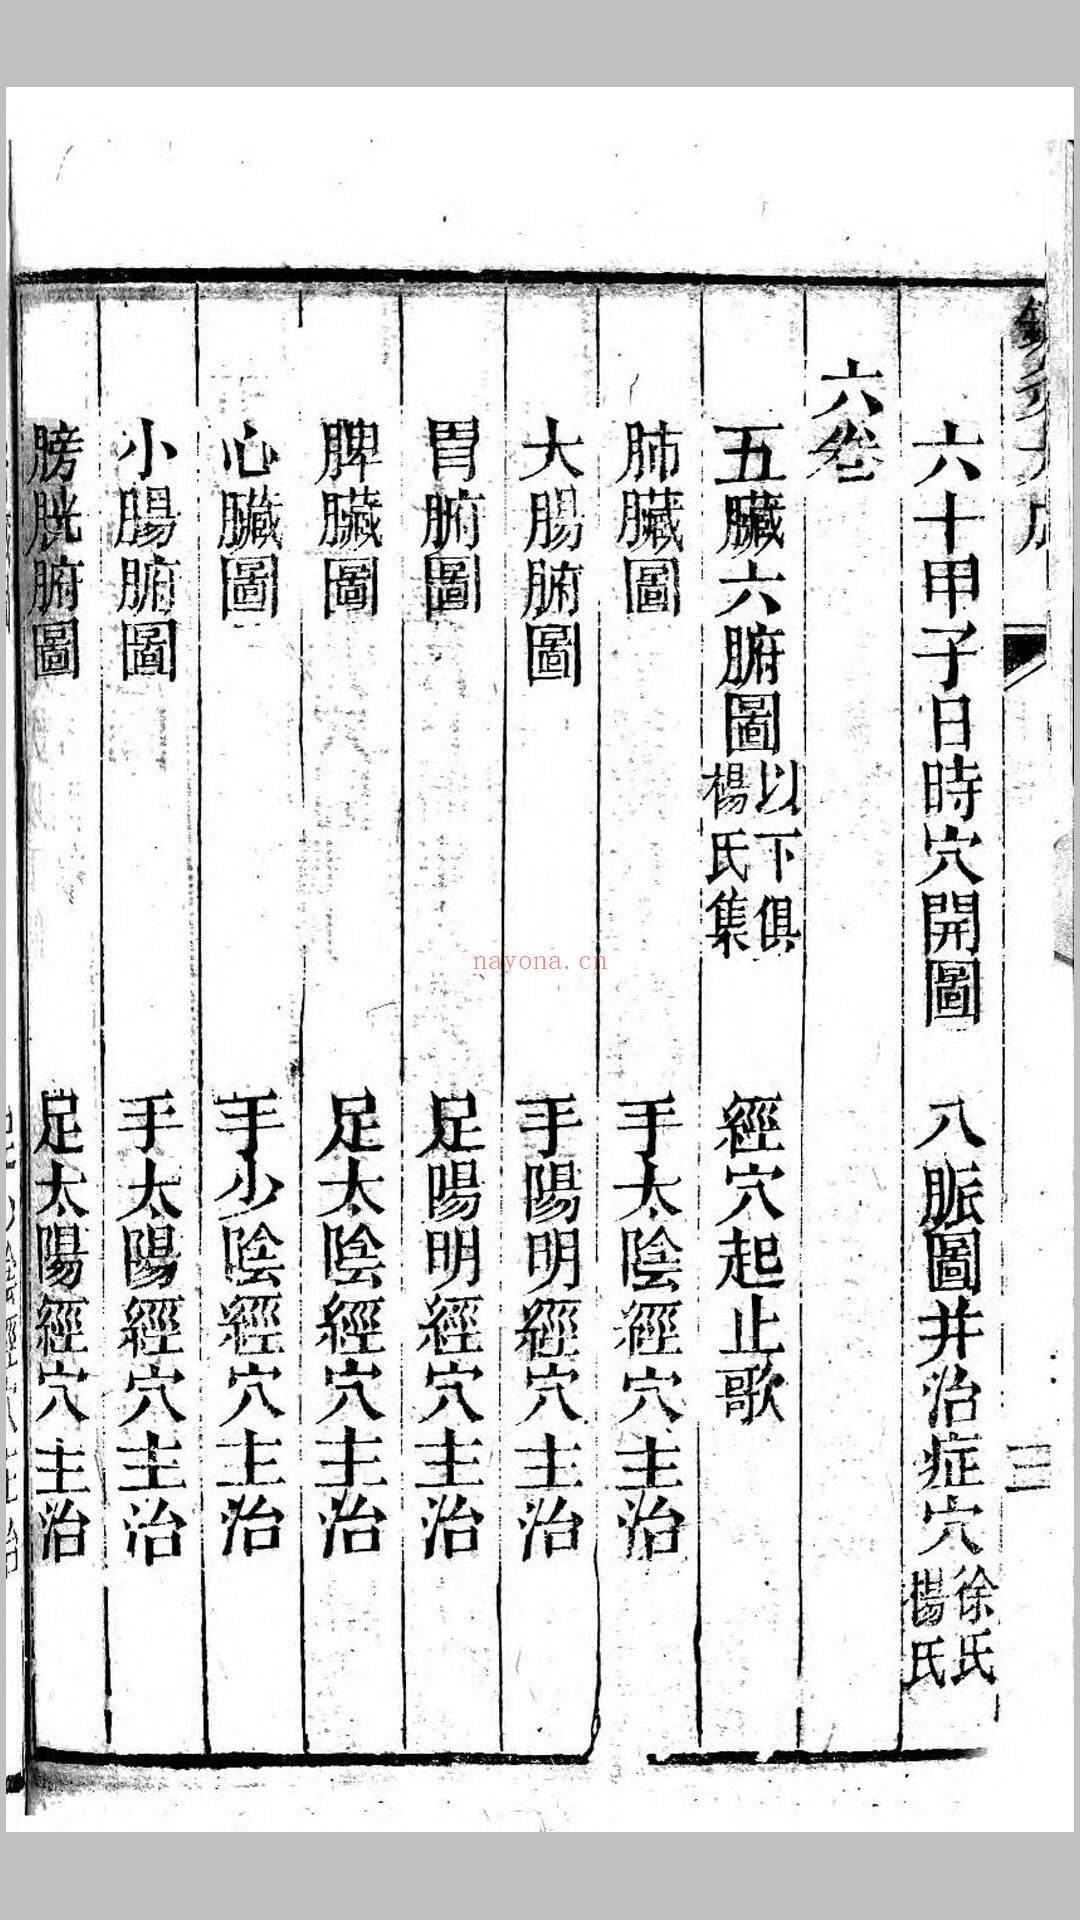 六十甲子日時穴開圖　八脈圖并治症穴徐氏楊氏
六卷
五臟六腑圖以下俱楊氏集　經穴起止歌
肺臟圖　手太陰經穴主治
大腸腑圖　手陽明經穴主治
胃腑圖　足陽明經穴主治
脾臟圖　足太陰經穴主治
心臟圖　手少陰經穴主治
小腸腑圖　手太陽經穴主治
膀胱腑圖　足太陽經穴主治
三
nayona.cn